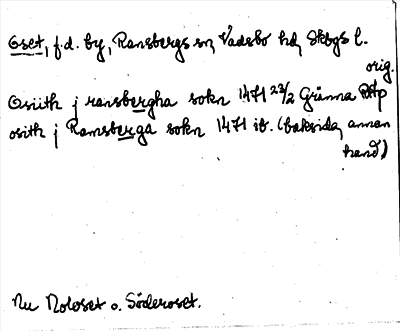 Oset, f.d. by, Ransbergs sn, Vadsbo hd, Skbgs l.
orig.
Osiith j ransbergha sokn 1471 22/2 Gränna RAp
osith j Ramsberga sokn 1471 ib. (baksida, annan
hand)
Nu Noloset o. Söderoset.